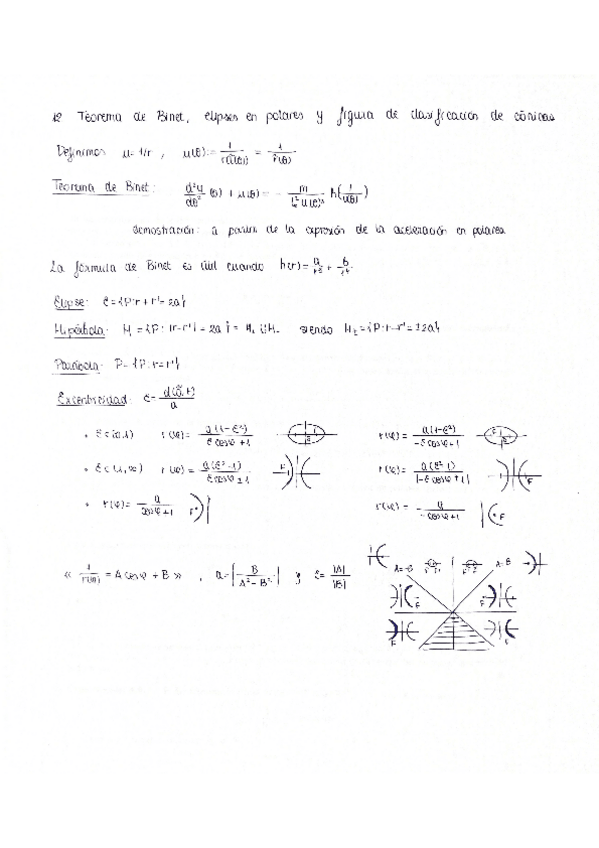 12 Teorema de Binet, elipses en polares y figura de clasificación de cónicas
Definimos u = 1/r , u(θ) := 1/r(ũ(θ)) = 1/r̃(θ)
Teorema de Binet: d²u/dθ² (θ) + u(θ) = - m/(L² u(θ)²) h(1/u(θ))
demostración: a partir de la expresión de la aceleración en polares
La fórmula de Binet es útil cuando h(r) = a/r³ + b/r²
Elipse: E = {P: r + r' = 2a}
Hipérbola: H = {P: |r - r'| = 2a} = H₊ ∪ H₋ siendo H± = {P: r - r' = ±2a}
Parábola: P = {P: r = r'}
Excentricidad: ε = d(O, F)/a
• ε ∈ (0,1) r(φ) = a(1-ε²)/(ε cosφ + 1) r(φ) = a(1-ε²)/(-ε cosφ + 1)
• ε ∈ (1,∞) r(φ) = a(ε²-1)/(ε cosφ ± 1) r(φ) = a(ε²-1)/|-ε cosφ + 1|
• r(φ) = a/(cosφ + 1) r(φ) = a/(-cosφ + 1)
« 1/r(φ) = A cosφ + B » , a = |B/(A² - B²)| y ε = |A|/|B|
A=-B A=B
F F
F